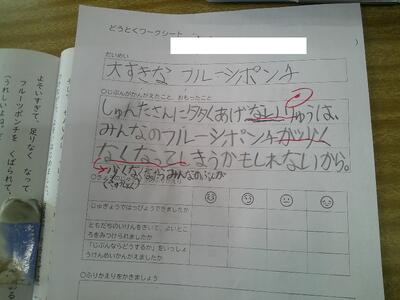 どうとくワークシート
)
だいめい
大すきな フルーツポンチ
○じぶんがかんがえたこと、おもったこと
しゅんたさんに多くあげないりゆうは、
みんなのフルーツポンチが少く
なくなってしまうかもしれないから。
少なくなったらみんなのぶんが
じゅぎょうではっぴょうできましたか
ともだちのいけんをきいて、よいところをみつけられましたか
「じぶんならどうするか」をいっしょうけんめいかんがえましたか
○ふりかえりをかきましょう
よそいすぎて、足りなく なって
フルーツポンチを くばられて、
(うれしいよね。